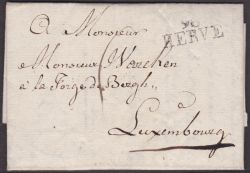 A Monsieur
96
HERVE
Monsieur
à la forge de Bergh..
à
Luxembourg